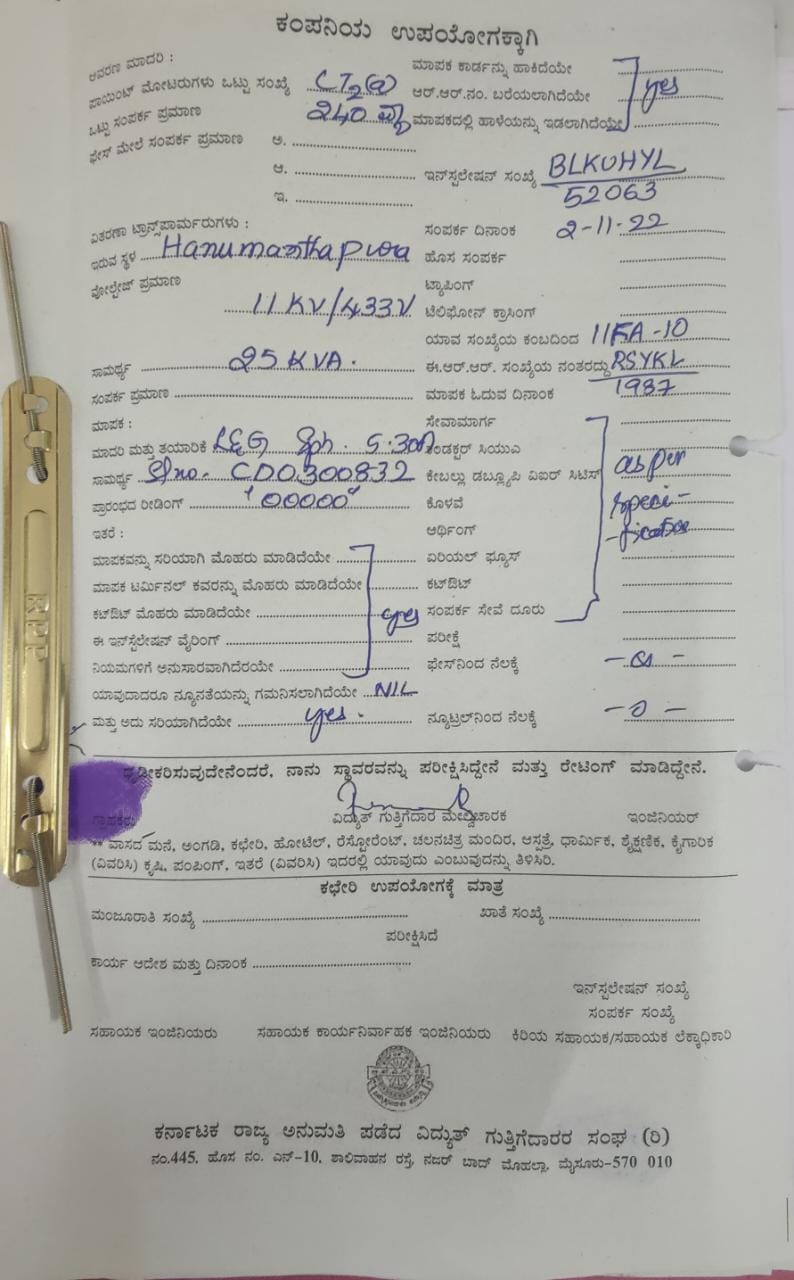 ಕಂಪನಿಯ ಉಪಯೋಗಕ್ಕಾಗಿ
ಆವರಣ ಮಾದರಿ : ಮಾಪಕ ಕಾರ್ಡನ್ನು ಹಾಕಿದೆಯೇ
ಪಾಯಿಂಟ್ ಮೋಟರುಗಳು ಒಟ್ಟು ಸಂಖ್ಯೆ ಆರ್.ಆರ್.ನಂ. ಬರೆಯಲಾಗಿದೆಯೇ yes
ಒಟ್ಟು ಸಂಪರ್ಕ ಪ್ರಮಾಣ 240 ಮಾಪಕದಲ್ಲಿ ಹಾಳೆಯನ್ನು ಇಡಲಾಗಿದೆಯೇ
ಫೇಸ್ ಮೇಲೆ ಸಂಪರ್ಕ ಪ್ರಮಾಣ ಅ.
ಆ. ಇನ್‌ಸ್ಟಲೇಷನ್ ಸಂಖ್ಯೆ BLKUHYL
ಇ. 52063
ವಿತರಣಾ ಟ್ರಾನ್ಸ್‌ಪಾರ್ಮರುಗಳು : ಸಂಪರ್ಕ ದಿನಾಂಕ 2-11-22
ಇರುವ ಸ್ಥಳ Hanumanthapura ಹೊಸ ಸಂಪರ್ಕ
ವೋಲ್ಟೇಜ್ ಪ್ರಮಾಣ ಟ್ಯಾಪಿಂಗ್
11 KV/433V ಟೆಲಿಫೋನ್ ಕ್ರಾಸಿಂಗ್
ಯಾವ ಸಂಖ್ಯೆಯ ಕಂಬದಿಂದ 11FA-10
ಸಾಮರ್ಥ್ಯ 25 KVA. ಈ.ಆರ್.ಆರ್. ಸಂಖ್ಯೆಯ ನಂತರದ್ದು RSYKL
ಸಂಪರ್ಕ ಪ್ರಮಾಣ ಮಾಪಕ ಓದುವ ದಿನಾಂಕ 1987
ಮಾಪಕ : ಸೇವಾಮಾರ್ಗ
ಮಾದರಿ ಮತ್ತು ತಯಾರಿಕೆ L&G ಕಂಡಕ್ಟರ್ ಸಿಯುಎ
ಸಾಮರ್ಥ್ಯ Sl no. CD0300832 ಕೇಬಲ್ಲು ಡಬ್ಲ್ಯೂಪಿ ವಿಐರ್ ಸಿಟಿಸ್ as per
ಪ್ರಾರಂಭದ ರೀಡಿಂಗ್ '00000' ಕೊಳವೆ speci-
ಇತರೆ : ಆರ್ಥಿಂಗ್ -fication
ಮಾಪಕವನ್ನು ಸರಿಯಾಗಿ ಮೊಹರು ಮಾಡಿದೆಯೇ ಏರಿಯಲ್ ಫ್ಯೂಸ್
ಮಾಪಕ ಟರ್ಮಿನಲ್ ಕವರನ್ನು ಮೊಹರು ಮಾಡಿದೆಯೇ ಕಟ್‌ಔಟ್
ಕಟ್‌ಔಟ್ ಮೊಹರು ಮಾಡಿದೆಯೇ yes ಸಂಪರ್ಕ ಸೇವೆ ದೂರು
ಈ ಇನ್‌ಸ್ಟಲೇಷನ್ ವೈರಿಂಗ್ ಪರೀಕ್ಷೆ
ನಿಯಮಗಳಿಗೆ ಅನುಸಾರವಾಗಿದೆರಯೇ ಫೇಸ್‌ನಿಂದ ನೆಲಕ್ಕೆ
ಯಾವುದಾದರೂ ನ್ಯೂನತೆಯನ್ನು ಗಮನಿಸಲಾಗಿದೆಯೇ NIL
ಮತ್ತು ಅದು ಸರಿಯಾಗಿದೆಯೇ yes. ನ್ಯೂಟ್ರಲ್‌ನಿಂದ ನೆಲಕ್ಕೆ
ದೃಢೀಕರಿಸುವುದೇನೆಂದರೆ, ನಾನು ಸ್ಥಾವರವನ್ನು ಪರೀಕ್ಷಿಸಿದ್ದೇನೆ ಮತ್ತು ರೇಟಿಂಗ್ ಮಾಡಿದ್ದೇನೆ.
ಗ್ರಾಹಕರು ವಿದ್ಯುತ್ ಗುತ್ತಿಗೆದಾರ ಮೇಲ್ವಿಚಾರಕ ಇಂಜಿನಿಯರ್
** ವಾಸದ ಮನೆ, ಅಂಗಡಿ, ಕಛೇರಿ, ಹೋಟೆಲ್, ರೆಸ್ಟೋರೆಂಟ್, ಚಲನಚಿತ್ರ ಮಂದಿರ, ಆಸ್ಪತ್ರೆ, ಧಾರ್ಮಿಕ, ಶೈಕ್ಷಣಿಕ, ಕೈಗಾರಿಕ
(ವಿವರಿಸಿ) ಕೃಷಿ, ಪಂಪಿಂಗ್, ಇತರೆ (ವಿವರಿಸಿ) ಇದರಲ್ಲಿ ಯಾವುದು ಎಂಬುವುದನ್ನು ತಿಳಿಸಿರಿ.
ಕಛೇರಿ ಉಪಯೋಗಕ್ಕೆ ಮಾತ್ರ
ಮಂಜೂರಾತಿ ಸಂಖ್ಯೆ ಖಾತೆ ಸಂಖ್ಯೆ
ಪರೀಕ್ಷಿಸಿದೆ
ಕಾರ್ಯ ಆದೇಶ ಮತ್ತು ದಿನಾಂಕ
ಇನ್‌ಸ್ಟಲೇಷನ್ ಸಂಖ್ಯೆ
ಸಂಪರ್ಕ ಸಂಖ್ಯೆ
ಸಹಾಯಕ ಇಂಜಿನಿಯರು ಸಹಾಯಕ ಕಾರ್ಯನಿರ್ವಾಹಕ ಇಂಜಿನಿಯರು ಕಿರಿಯ ಸಹಾಯಕ/ಸಹಾಯಕ ಲೆಕ್ಕಾಧಿಕಾರಿ
ಕರ್ನಾಟಕ ರಾಜ್ಯ ಅನುಮತಿ ಪಡೆದ ವಿದ್ಯುತ್ ಗುತ್ತಿಗೆದಾರರ ಸಂಘ (ರಿ)
ನಂ.445, ಹೊಸ ನಂ. ಎನ್-10, ಶಾಲಿವಾಹನ ರಸ್ತೆ, ನಜರ್ ಬಾದ್ ಮೊಹಲ್ಲಾ, ಮೈಸೂರು-570 010
RPP